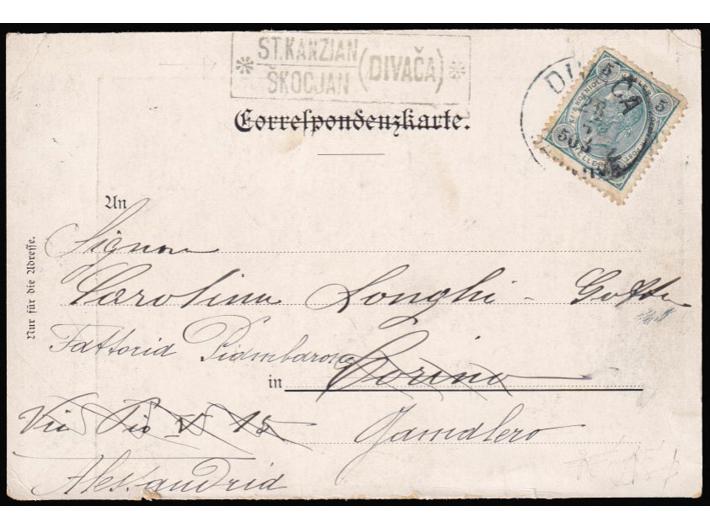 ST.KANZIAN
ŠKOCJAN
(DIVAČA)
Correspondenzkarte.
DIVAČA
5 5
50
An
Signora
Carolina Longhi - Gotta
Fattoria Piambarosa
in Torino
Via Pio V 15 Gamalero
Alessandria
Nur für die Adresse.